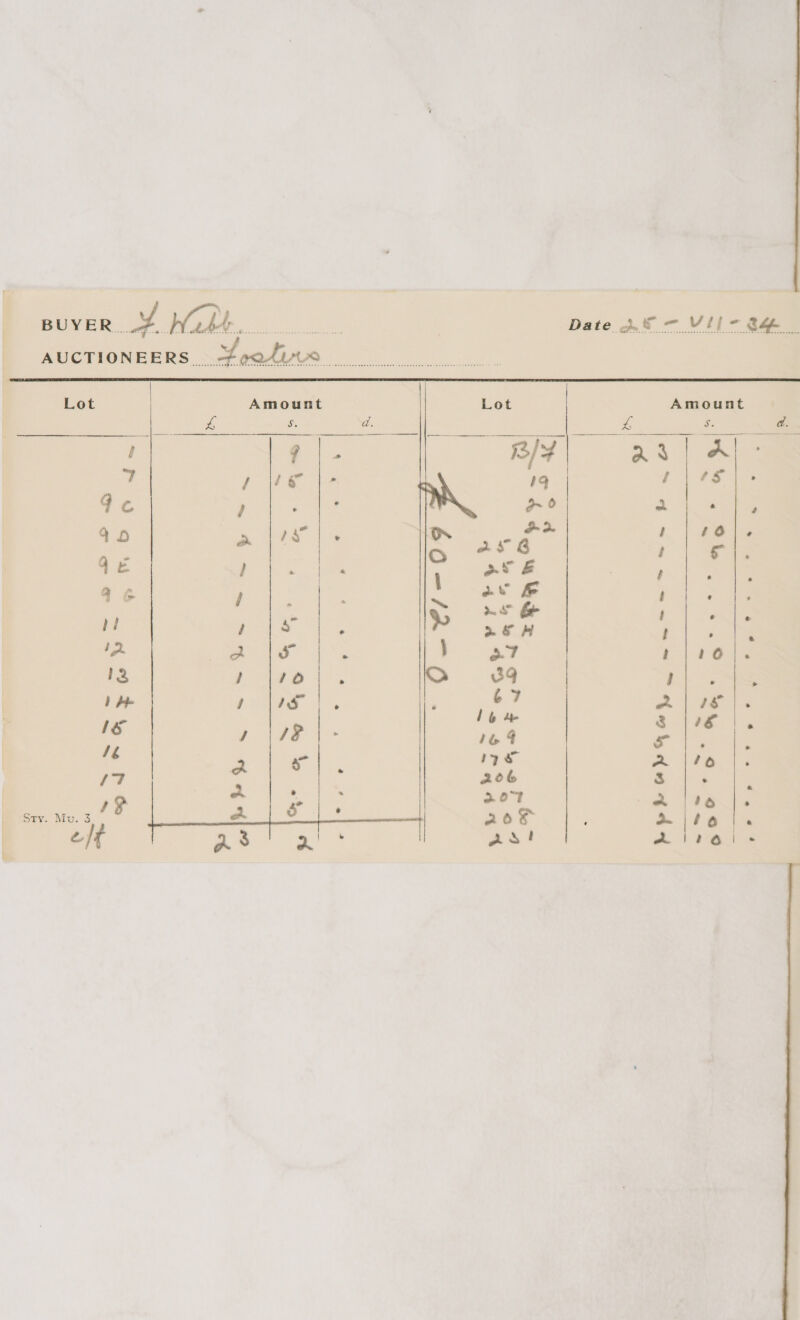 BUYER Date 25 - VII - 34
AUCTIONEERS
Lot Amount Lot Amount
£ s. d. £ s. d.
1 9 . B/F 23 2 .
7 1 15 . 19 1 15 .
9c 1 . . 20 2 . .
9D 2 15 . 22 1 10 .
9E 1 . . 25B 1 5 .
9G 1 . . 25E 1 . .
11 1 5 . 25F 1 . .
12 2 5 . 25G 1 . .
13 1 10 . 25H 1 . .
14 1 15 . 27 1 10 .
15 1 18 . 39 1 . .
16 2 5 . 67 2 15 .
17 2 . . 164 3 15 .
18 2 5 . 169 5 . .
Sty. Mu. 3 175 2 10 .
c/f 23 2 . 206 3 . .
207 2 10 .
208 2 10 .
221 2 10 .